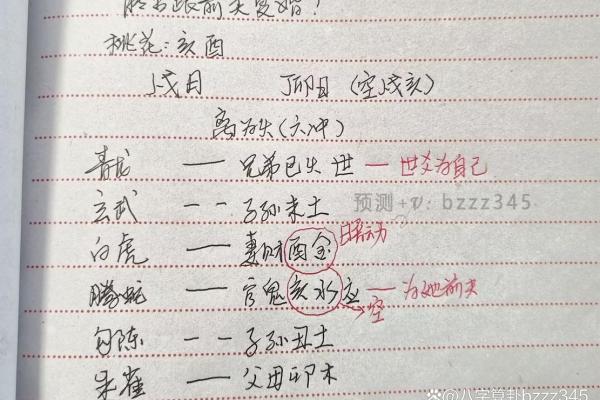 能否跟前夫复婚?
桃花:亥酉
戌月 丁卯日(空戌亥)
离为火(六冲)
青龙 — 兄弟巳火 世 — 世爻为自己
玄武 -- 子孙未土
预测+v: bzzz345
白虎 — 妻财酉金 暗动
腾蛇 — 官鬼亥水应 — 为她前夫
→空
勾陈 -- 子孙丑土
朱雀 — 父母卯木
@八字算卦bzzz345